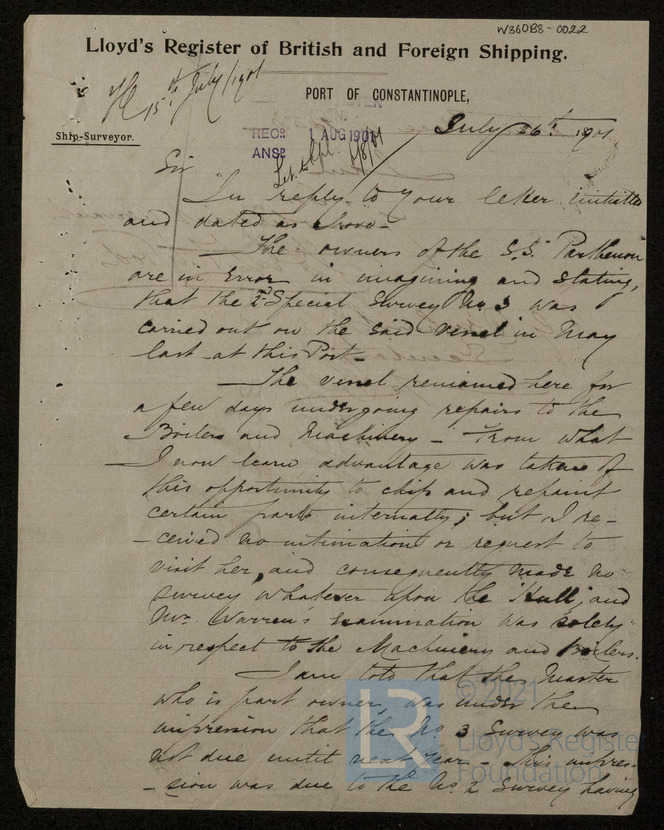 W360B8-0022
Lloyd's Register of British and Foreign Shipping.
15th July/1901
PORT OF CONSTANTINOPLE,
Ship-Surveyor.
July 26th 1901
REC'D 1 AUG 1901
ANSD
Sir
In reply to your letter initialled
and dated as above-
The owners of the S.S. Parthenon
are in error in imagining and stating,
that the 2nd Special Survey No 3 was
carried out on the said vessel in May
last at this Port-
The vessel remained here for
a few days undergoing repairs to the
Boilers and Machinery - From what
I now learn advantage was taken of
this opportunity to chip and repaint
certain parts internally; but I re-
-ceived no intimation or request to
visit her, and consequently made no
survey whatever upon the "Hull", and
Mr. Warren's examination was solely
in respect to the Machinery and Boilers.
I am told that the Master
who is part owner, was under the
impression that the No 3 Survey was
not due until next year - This impres-
-sion was due to the No 2 Survey having
LR
© 2021
Lloyd's Register
Foundation